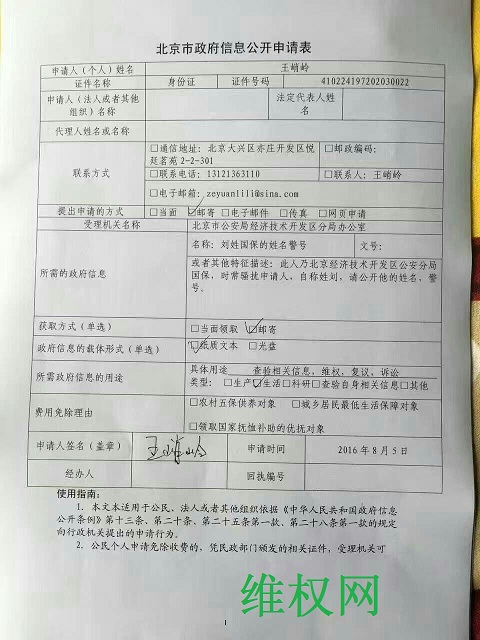 北京市政府信息公开申请表
申请人（个人）姓名 王峭岭
证件名称 身份证 证件号码 410224197202030022
申请人（法人或者其他组织）名称 法定代表人姓名
代理人姓名或名称
联系方式
□通信地址：北京大兴区亦庄开发区悦 □邮政编码：
廷茗苑 2-2-301
□联系电话：13121363110 □联系人：王峭岭
□电子邮箱：zeyuanlili@sina.com
提出申请的方式 □当面 □邮寄 □电子邮件 □传真 □网页申请
受理机关名称 北京市公安局经济技术开发区分局办公室
所需的政府信息
名称：刘姓国保的姓名警号 文号：
或者其他特征描述：此人乃北京经济技术开发区公安分局
国保，时常骚扰申请人，自称姓刘，请公开他的姓名，警
号。
获取方式（单选） □当面领取 □邮寄
政府信息的载体形式（单选） □纸质文本 □光盘
所需政府信息的用途
具体用途 查验相关信息，维权，复议，诉讼
类型：□生产□生活□科研□查验自身相关信息□其他
费用免除理由
□农村五保供养对象 □城乡居民最低生活保障对象
□领取国家抚恤补助的优抚对象
申请人签名（盖章） 王峭岭 申请时间 2016 年 8 月 5 日
经办人 回执编号
使用指南：
1．本文本适用于公民、法人或者其他组织依据《中华人民共和国政府信息
公开条例》第十三条、第二十条、第二十五条第一款、第二十八条第一款的规定
向行政机关提出的申请行为。
2．公民个人申请免除收费的，凭民政部门颁发的相关证件，受理机关可
维权网
1